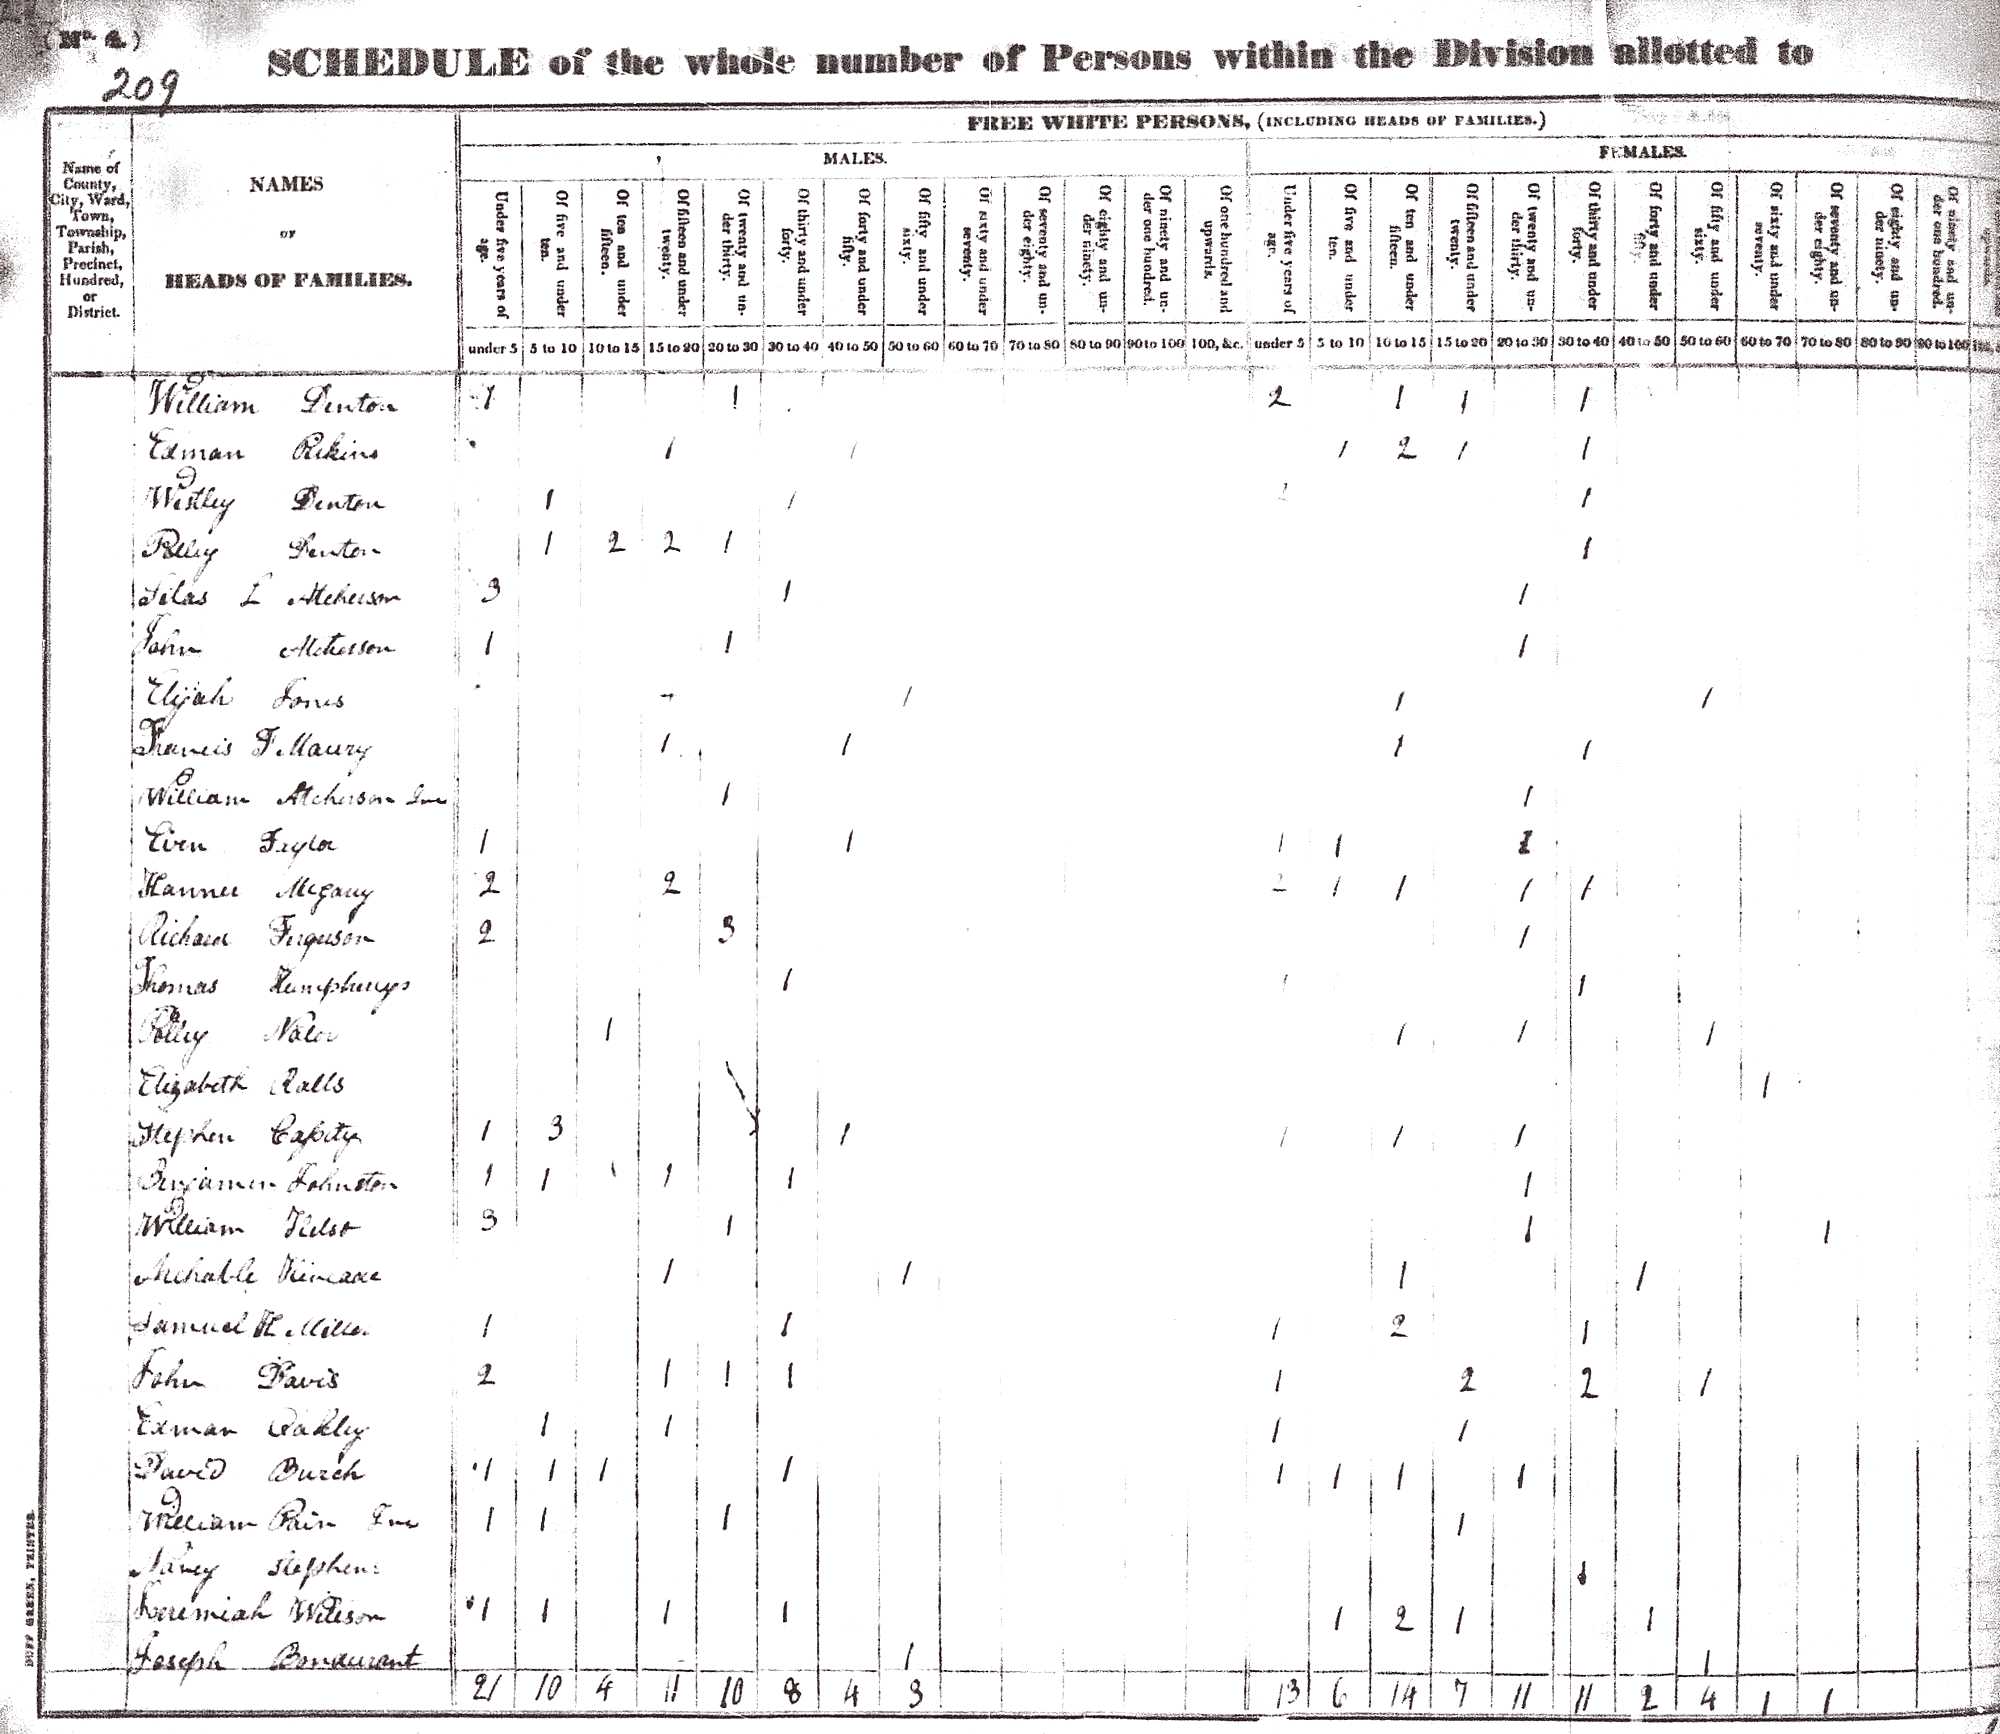 (No. 4.)
209
SCHEDULE of the whole number of Persons within the Division allotted to
FREE WHITE PERSONS, (INCLUDING HEADS OF FAMILIES.)
MALES. FEMALES.
Name of County, City, Ward, Town, Township, Parish, Precinct, Hundred, or District.
NAMES
OF
HEADS OF FAMILIES.
Under five years of age.
Of five and under ten.
Of ten and under fifteen.
Of fifteen and under twenty.
Of twenty and under thirty.
Of thirty and under forty.
Of forty and under fifty.
Of fifty and under sixty.
Of sixty and under seventy.
Of seventy and under eighty.
Of eighty and under ninety.
Of ninety and under one hundred.
Of one hundred and upwards.
Under five years of age.
Of five and under ten.
Of ten and under fifteen.
Of fifteen and under twenty.
Of twenty and under thirty.
Of thirty and under forty.
Of forty and under fifty.
Of fifty and under sixty.
Of sixty and under seventy.
Of seventy and under eighty.
Of eighty and under ninety.
Of ninety and under one hundred.
under 5 5 to 10 10 to 15 15 to 20 20 to 30 30 to 40 40 to 50 50 to 60 60 to 70 70 to 80 80 to 90 90 to 100 100, &c. under 5 5 to 10 10 to 15 15 to 20 20 to 30 30 to 40 40 to 50 50 to 60 60 to 70 70 to 80 80 to 90 90 to 100
William Denton 1 1 2 1 1 1
Edman 1 1 1 2 1 1
Westley Denton 1 1 1
Polley Denton 1 2 2 1 1
Silas L Atcherson 3 1 1
John Atcherson 1 1 1
Elijah Jones 1 1 1
Francis F Maury 1 1 1 1
William Atcherson Jnr 1 1
Even Taylor 1 1 1 1
Hanner Mcgary 2 2 2 1 1 1 1
Richard Ferguson 2 3 1
Thomas Humphreys 1 1 1
Polley Nalor 1 1 1 1
Elizabeth Ralls 1
Stephen 1 3 1 1 1 1
Benjamin Johnston 1 1 1 1 1 1
William 3 1 1 1
Archable 1 1 1 1
Samuel H Miller 1 1 1 2 1
John Davis 2 1 1 1 1 2 2 1
Edman Oakley 1 1 1 1
David Burch 1 1 1 1 1 1 1 1
William Pain Jnr 1 1 1 1
Nancy Stephens 1
Jeremiah Wilison 1 1 1 1 1 2 1 1
Joseph Bondurant 1 1
21 10 4 11 10 8 4 3 13 6 14 7 11 11 2 4 1 1
DUFF GREEN, PRINTER